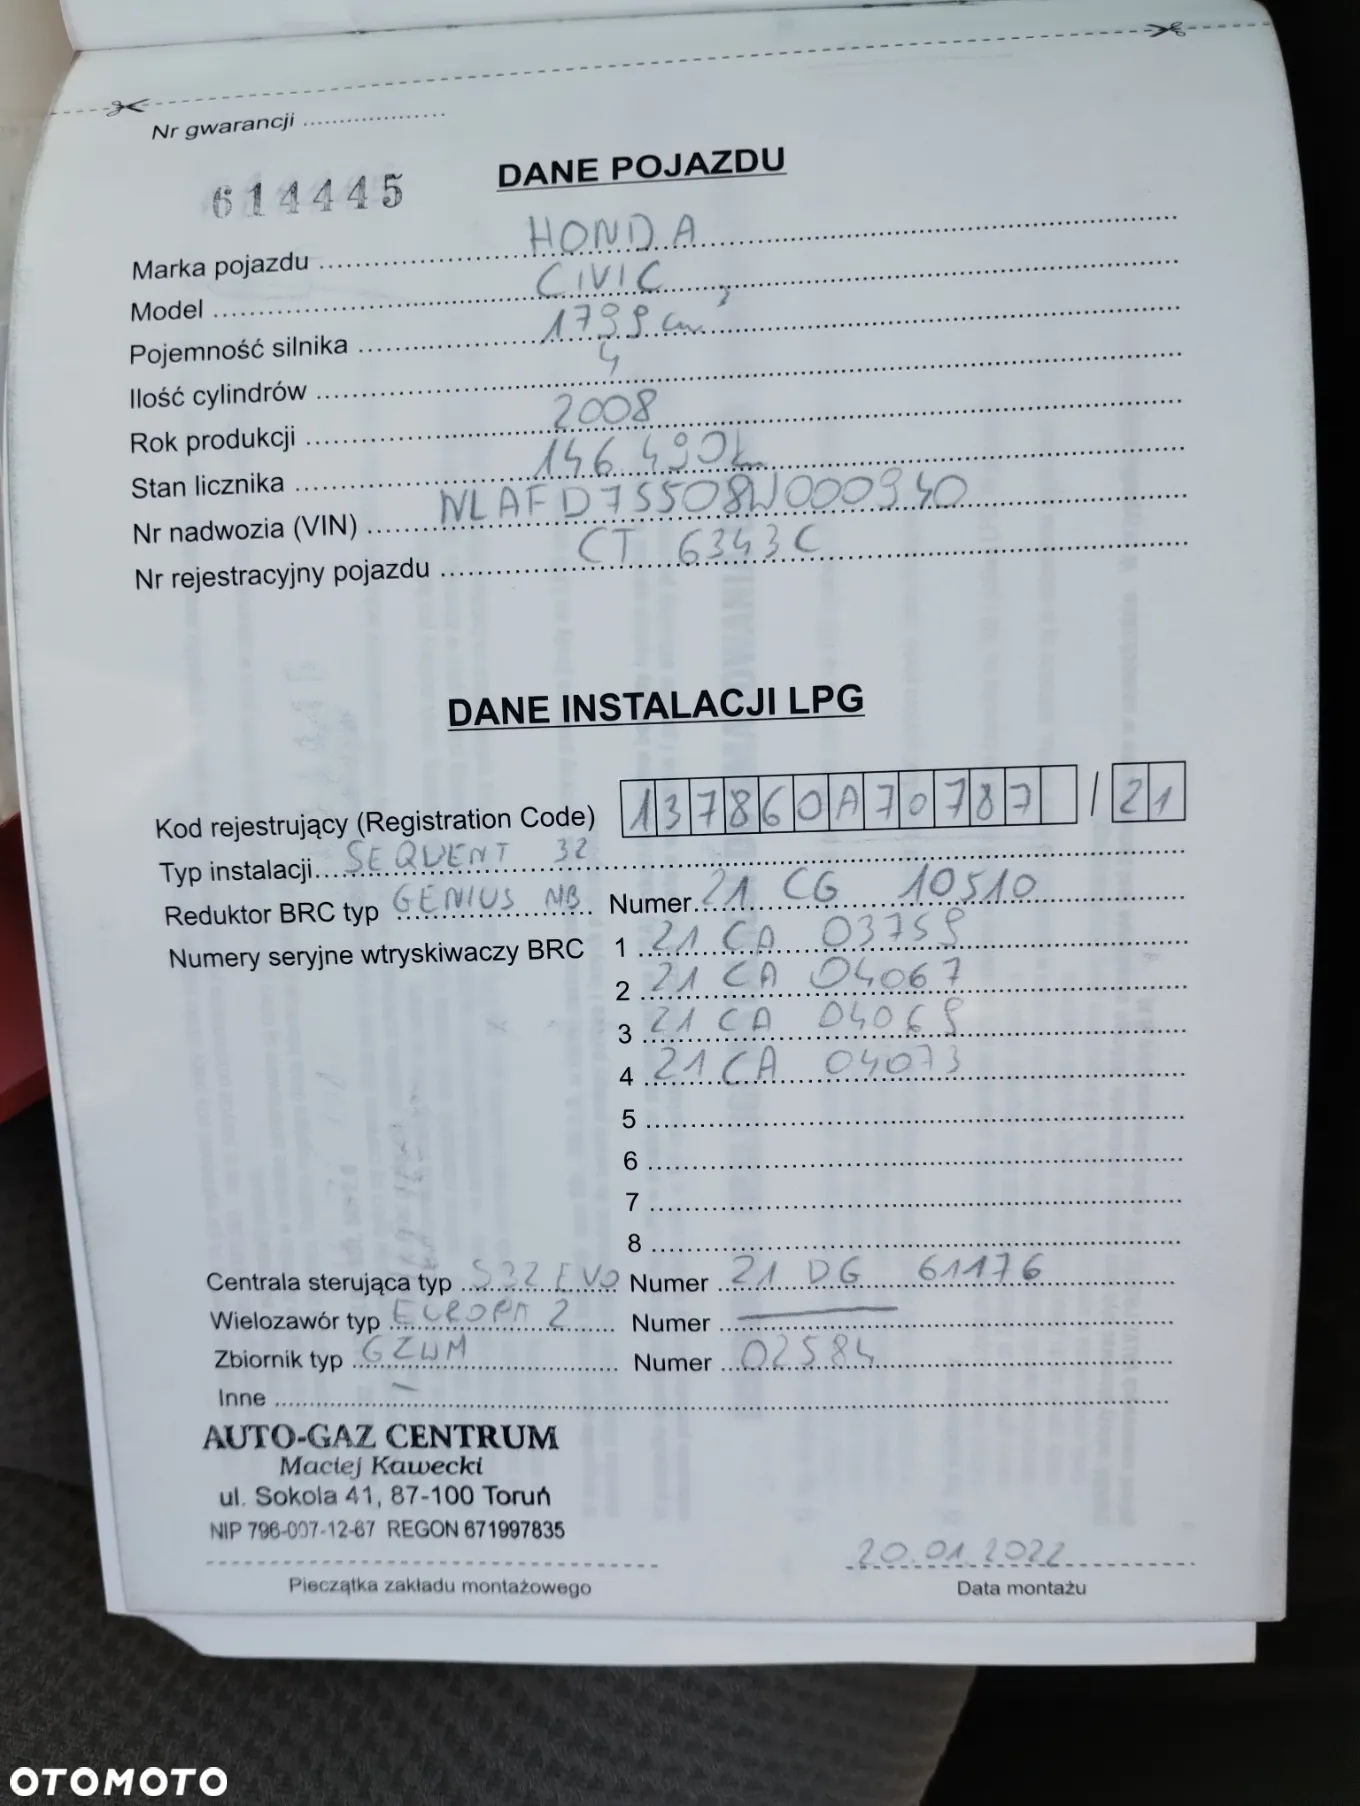 Nr gwarancji ....................
614445
DANE POJAZDU
Marka pojazdu HONDA
Model CIVIC
Pojemność silnika 1799 cm³
Ilość cylindrów 4
Rok produkcji 2008
Stan licznika 146 490
Nr nadwozia (VIN) NLAFD75508W000940
Nr rejestracyjny pojazdu CT 6343C
DANE INSTALACJI LPG
Kod rejestrujący (Registration Code) 137860A70787 / 21
Typ instalacji SEQUENT 32
Reduktor BRC typ GENIUS MB Numer 21 CG 10510
Numery seryjne wtryskiwaczy BRC 1 21 CA 03759
2 21 CA 04067
3 21 CA 04069
4 21 CA 04073
5
6
7
8
Centrala sterująca typ S32 EVO Numer 21 DG 61176
Wielozawór typ EUROPA 2 Numer —
Zbiornik typ GZWM Numer 02584
Inne —
AUTO-GAZ CENTRUM
Maciej Kawecki
ul. Sokola 41, 87-100 Toruń
NIP 796-007-12-67 REGON 671997835
20.01.2022
Pieczątka zakładu montażowego Data montażu
OTOMOTO